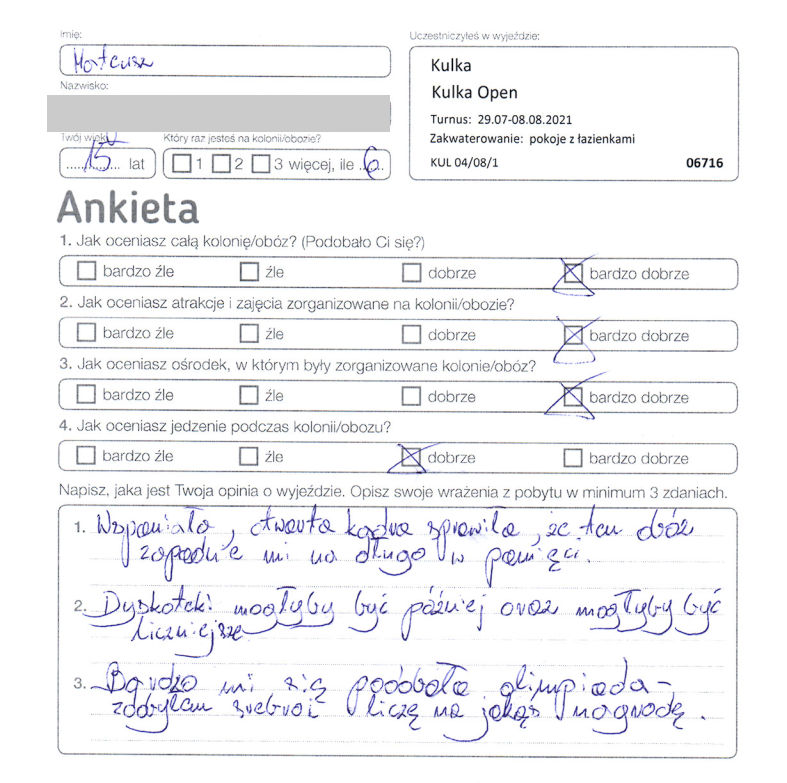 Imię:
Mateusz
Nazwisko:
Twój wiek
15 lat
Który raz jesteś na kolonii/obozie?
1 2 3 więcej, ile 6
Uczestniczyłeś w wyjeździe:
Kulka
Kulka Open
Turnus: 29.07-08.08.2021
Zakwaterowanie: pokoje z łazienkami
KUL 04/08/1 06716
Ankieta
1. Jak oceniasz całą kolonię/obóz? (Podobało Ci się?)
bardzo źle źle dobrze bardzo dobrze
2. Jak oceniasz atrakcje i zajęcia zorganizowane na kolonii/obozie?
bardzo źle źle dobrze bardzo dobrze
3. Jak oceniasz ośrodek, w którym były zorganizowane kolonie/obóz?
bardzo źle źle dobrze bardzo dobrze
4. Jak oceniasz jedzenie podczas kolonii/obozu?
bardzo źle źle dobrze bardzo dobrze
Napisz, jaka jest Twoja opinia o wyjeździe. Opisz swoje wrażenia z pobytu w minimum 3 zdaniach.
1. Wspaniała, otwarta kadra sprawiła, że ten obóz
zapadnie mi na długo w pamięci.
2. Dyskoteki mogłyby być później oraz mogłyby być
liczniejsze
3. Bardzo mi się podobała olimpiada -
zdobyłem srebro i liczę na jakąś nagrodę.